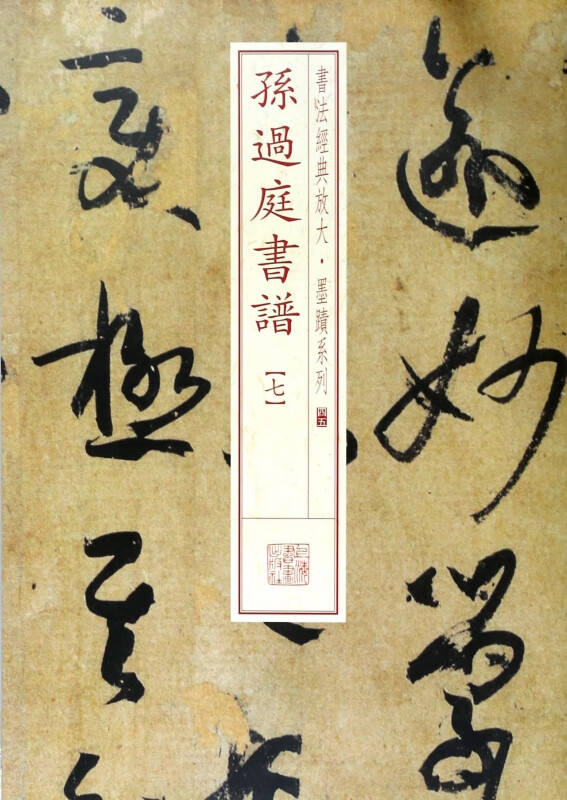 逾妙學
書法經典放大·墨蹟系列 四五
孫過庭書譜【七】
上海書畫出版社
變極其